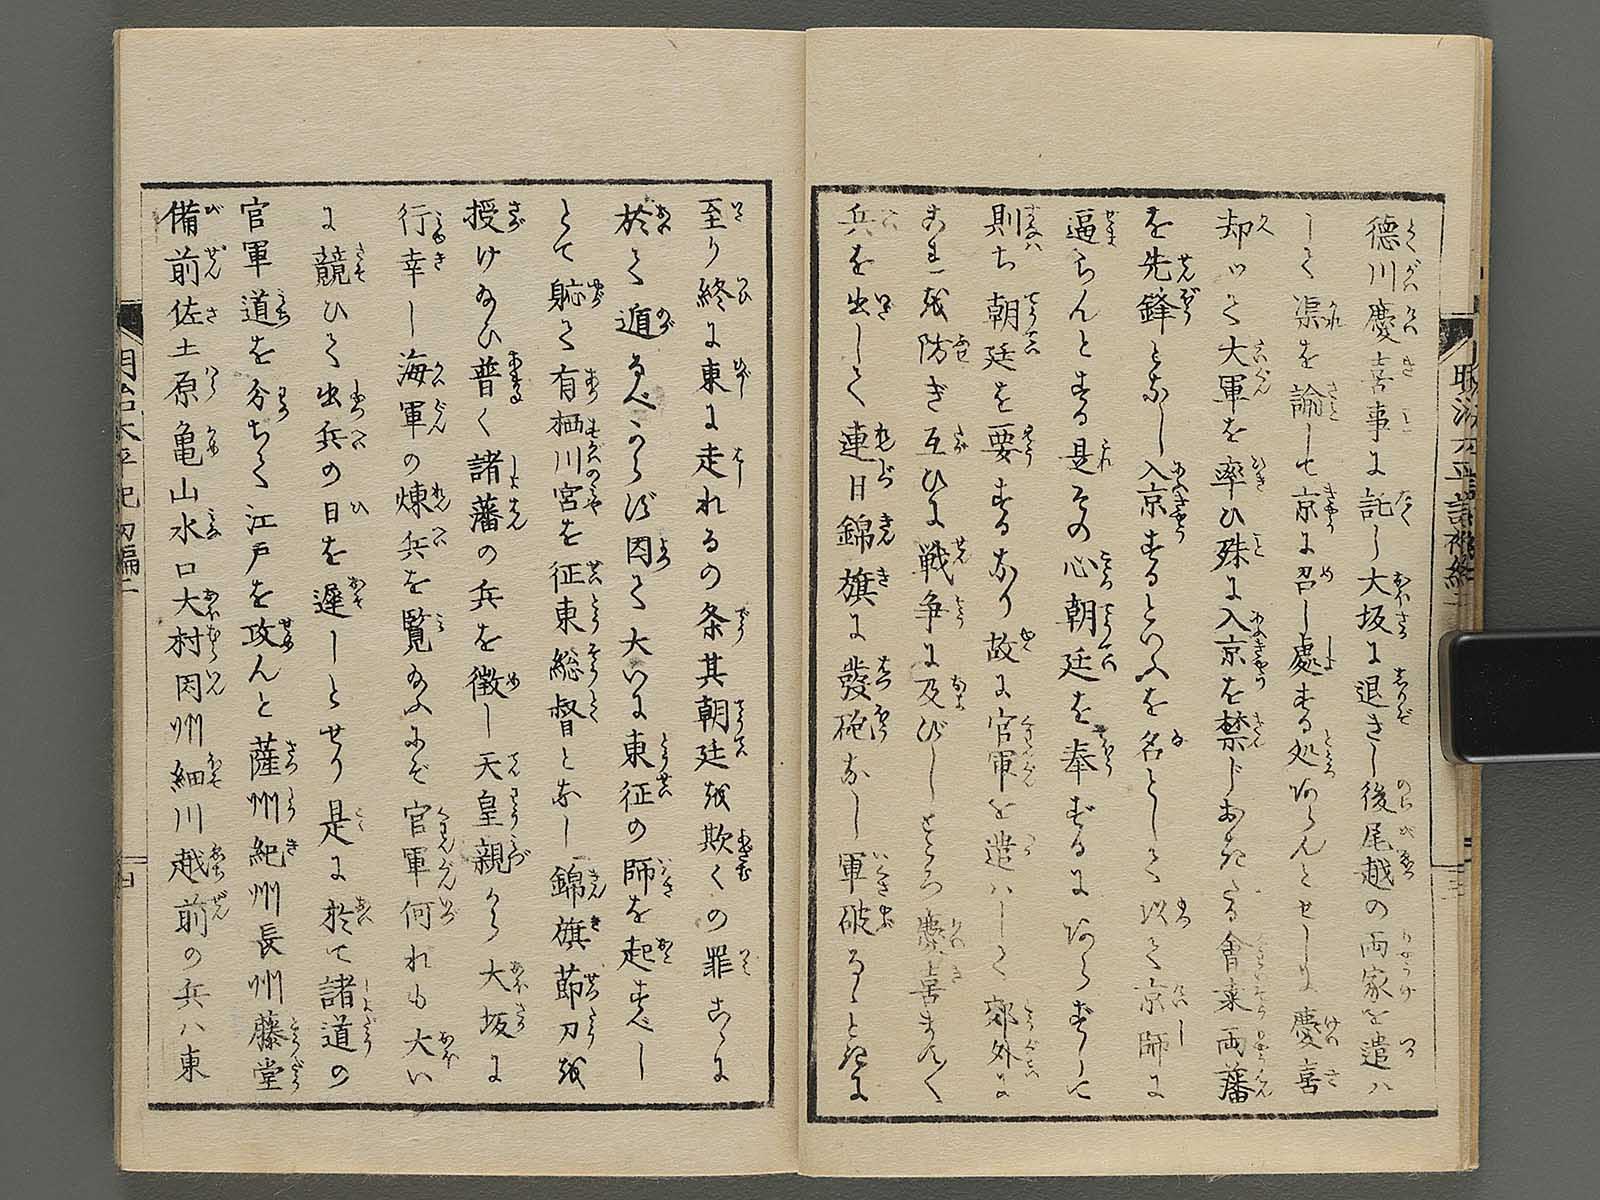 徳川慶喜事に託し大坂に退きし後尾越の両家を遣ハ
して渠を諭して京に召し處する処あらんとせしに慶喜
却ツて大軍を率ひ殊に入京を禁じおきたる會桒両藩
を先鋒となし入京するといふを名として以て京師に
逼らんとする是その心朝廷を奉ずるにあらずして
則ち朝廷を要するなり故に官軍を遣ハして郊外に
これを防ぎ互ひに戦争に及びしところ慶喜まつたく
兵を出して連日錦旗に發砲なし軍破るゝときに
至り終に東に走れるの条其朝廷を欺くの罪こゝに
於て遁るべからず因て大いに東征の師を起すべし
とて駈て有栖川宮を征東総督となし錦旗節刀を
授け給ひ普く諸藩の兵を徴し天皇親から大坂に
行幸し海軍の煉兵を覧給ふにぞ官軍何れも大い
に競ひて出兵の日を遅しとせり是に於て諸道の
官軍道を分ちて江戸を攻んと薩州紀州長州藤堂
備前佐土原亀山水口大村因州細川越前の兵ハ東
明治太平記初編二
四